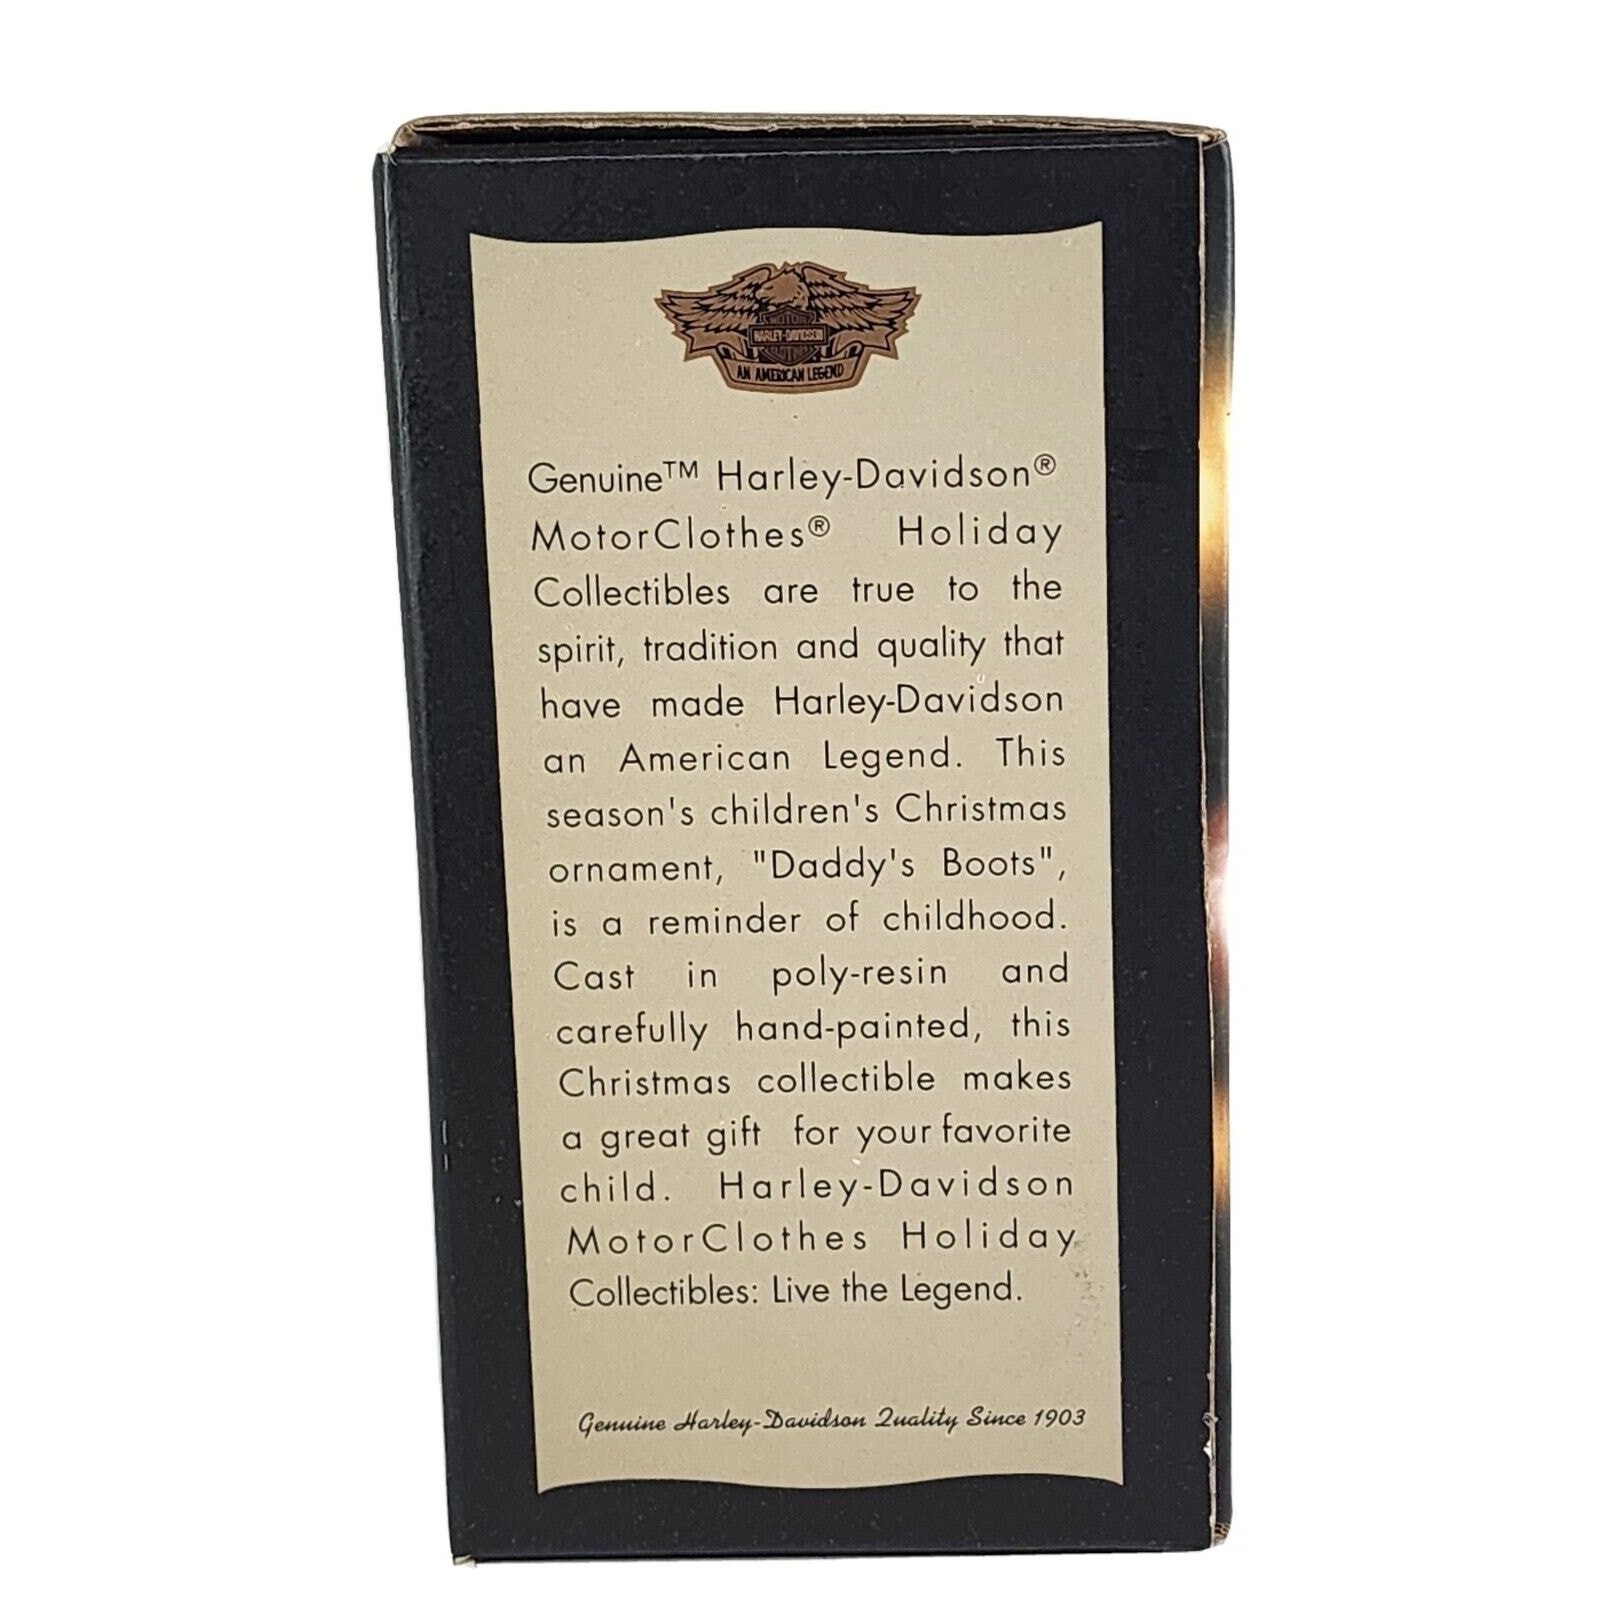 HARLEY-DAVIDSON
AN AMERICAN LEGEND
Genuine™ Harley-Davidson®
MotorClothes® Holiday
Collectibles are true to the
spirit, tradition and quality that
have made Harley-Davidson
an American Legend. This
season's children's Christmas
ornament, "Daddy's Boots",
is a reminder of childhood.
Cast in poly-resin and
carefully hand-painted, this
Christmas collectible makes
a great gift for your favorite
child. Harley-Davidson
MotorClothes Holiday
Collectibles: Live the Legend.
Genuine Harley-Davidson Quality Since 1903